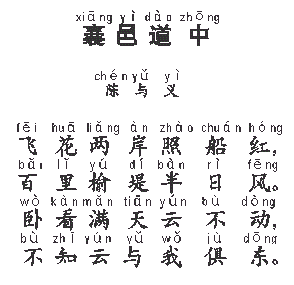 xiāng yì dào zhōng
襄邑道中
chén yǔ yì
陈与义
fēi huā liǎng àn zhào chuán hóng
飞花两岸照船红，
bǎi lǐ yú dí bàn rì fēng
百里榆堤半日风。
wò kàn mǎn tiān yún bù dòng
卧看满天云不动，
bù zhī yún yǔ wǒ jù dōng
不知云与我俱东。